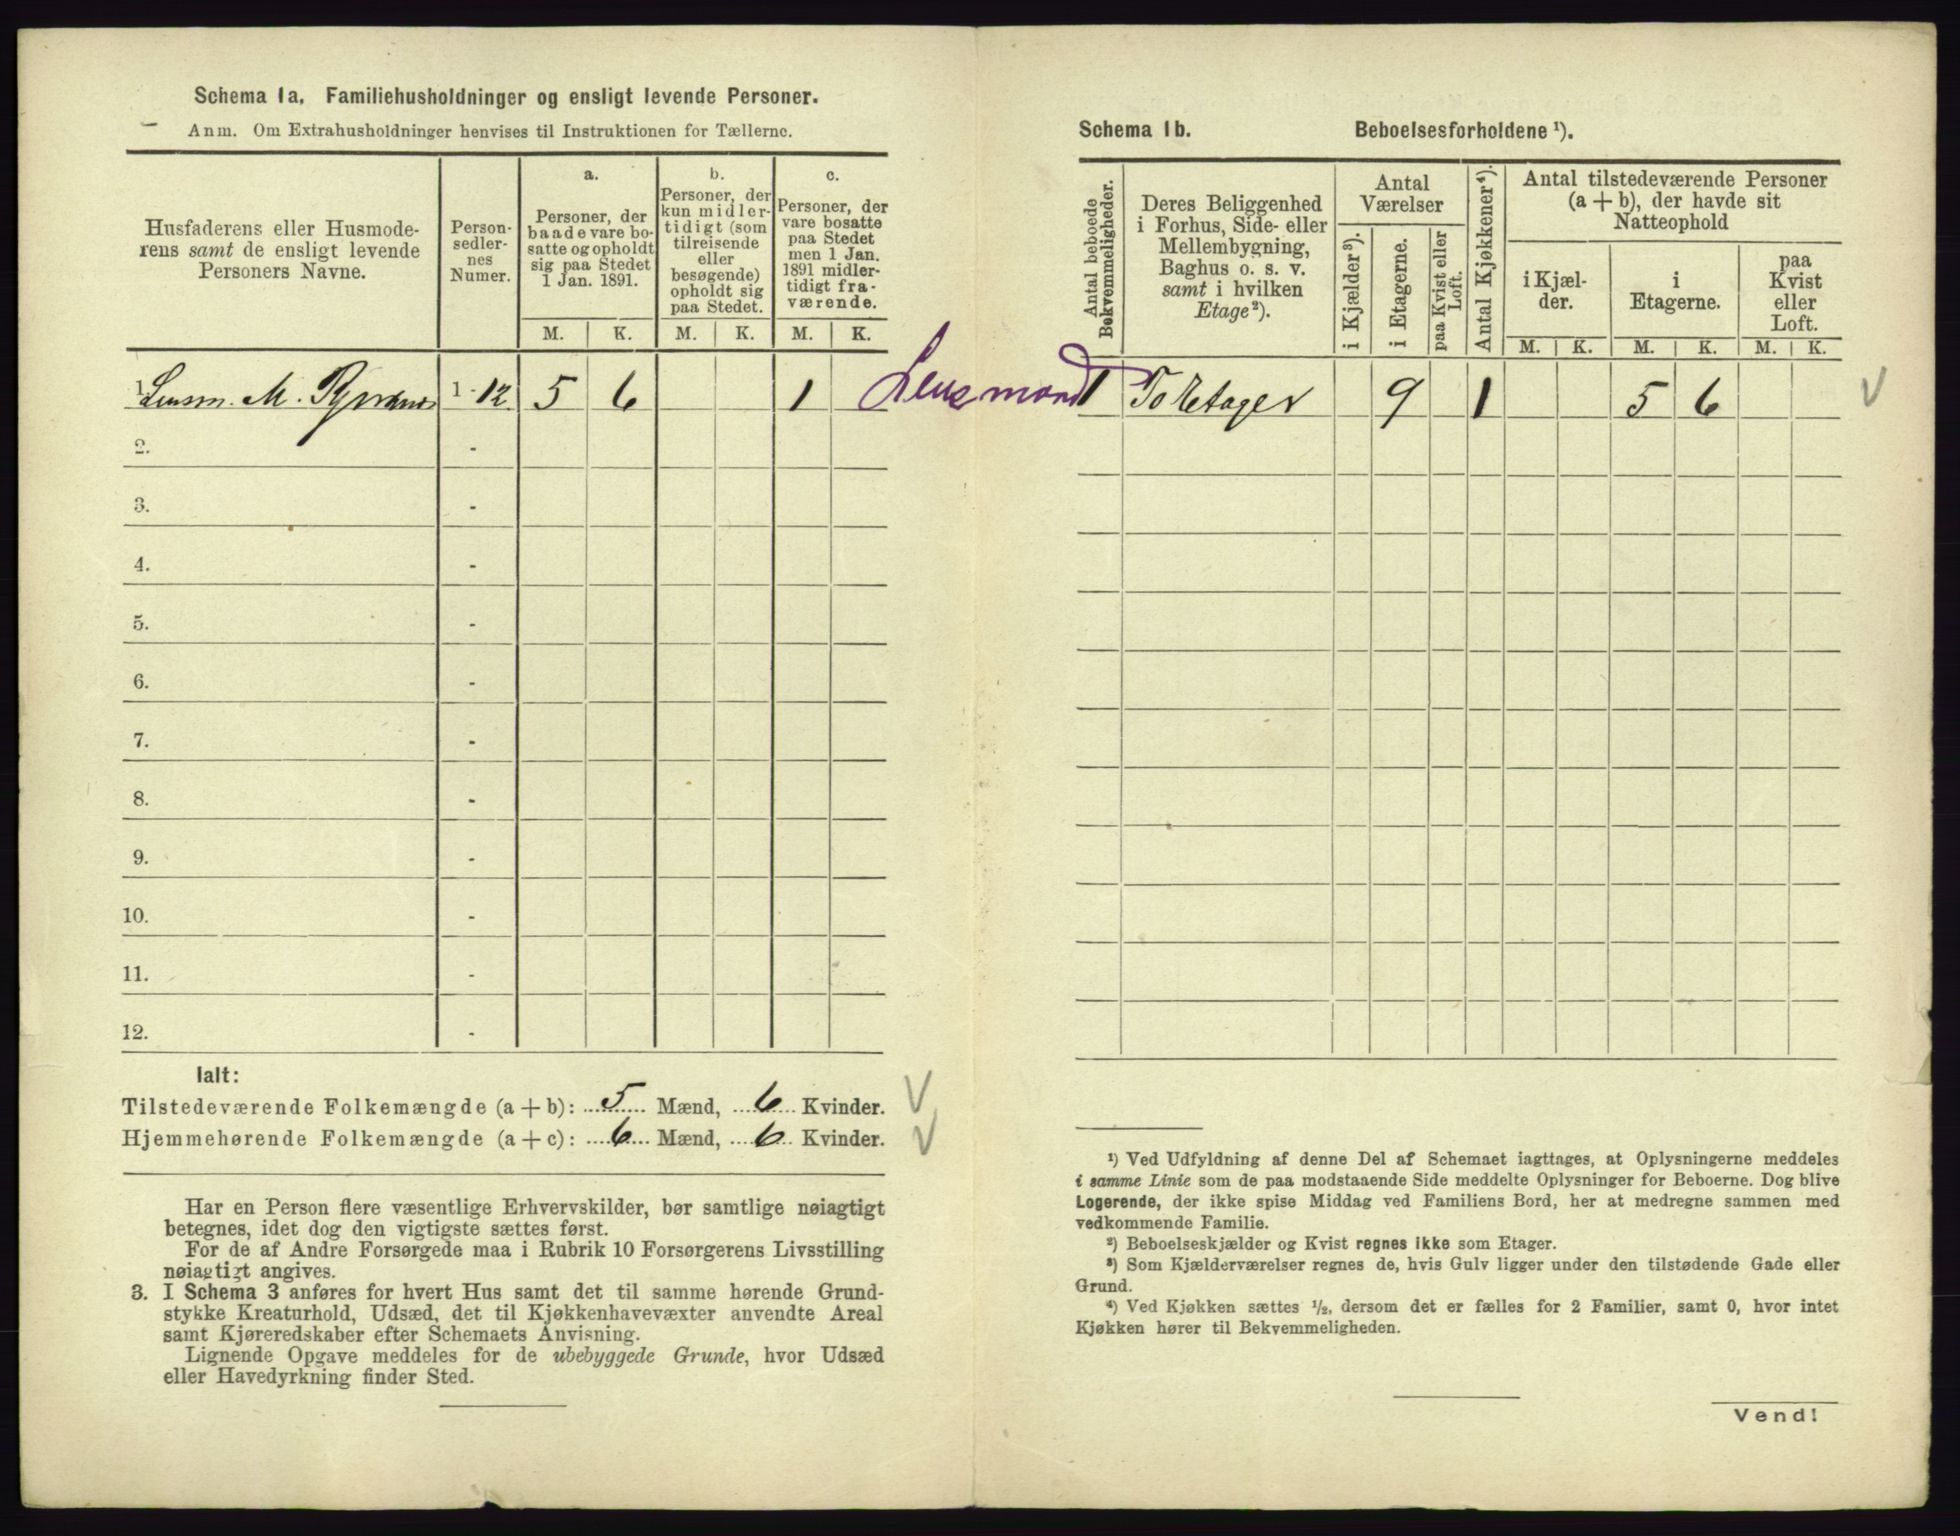 Schema 1a. Familiehusholdninger og ensligt levende Personer.
Anm. Om Extrahusholdninger henvises til Instruktionen for Tællerne.
Husfaderens eller Husmode-
rens samt de ensligt levende
Personers Navne.
Person-
sedler-
nes
Numer.
a.
Personer, der
baade vare bo-
satte og opholdt
sig paa Stedet
1 Jan. 1891.
b.
Personer, der
kun midler-
tidigt (som
tilreisende
eller
besøgende)
opholdt sig
paa Stedet.
c.
Personer, der
vare bosatte
paa Stedet
men 1 Jan.
1891 midler-
tidigt fra-
værende.
M. K. M. K. M. K.
1. Lensm. M. 1-12 5 6 1 Lensmand
2. -
3. -
4. -
5. -
6. -
7. -
8. -
9. -
10. -
11. -
12. -
Ialt:
Tilstedeværende Folkemængde (a + b): 5 Mænd, 6 Kvinder.
Hjemmehørende Folkemængde (a + c): 6 Mænd, 6 Kvinder.
Har en Person flere væsentlige Erhvervskilder, bør samtlige nøiagtigt
betegnes, idet dog den vigtigste sættes først.
For de af Andre Forsørgede maa i Rubrik 10 Forsørgerens Livsstilling
nøiagtigt angives.
3. I Schema 3 anføres for hvert Hus samt det til samme hørende Grund-
stykke Kreaturhold, Udsæd, det til Kjøkkenhavevæxter anvendte Areal
samt Kjøreredskaber efter Schemaets Anvisning.
Lignende Opgave meddeles for de ubebyggede Grunde, hvor Udsæd
eller Havedyrkning finder Sted.
Schema 1b. Beboelsesforholdene ¹).
Antal beboede
Bekvemmeligheder.
Deres Beliggenhed
i Forhus, Side- eller
Mellembygning,
Baghus o. s. v.
samt i hvilken
Etage²).
Antal
Værelser
i Kjælder³).
i Etagerne.
paa Kvist eller
Loft.
Antal Kjøkkener⁴).
Antal tilstedeværende Personer
(a + b), der havde sit
Natteophold
i Kjæl-
der.
i
Etagerne.
paa
Kvist
eller
Loft.
M. K. M. K. M. K.
1 To Etager 9 1 5 6
¹) Ved Udfyldning af denne Del af Schemaet iagttages, at Oplysningerne meddeles
i samme Linie som de paa modstaaende Side meddelte Oplysninger for Beboerne. Dog blive
Logerende, der ikke spise Middag ved Familiens Bord, her at medregne sammen med
vedkommende Familie.
²) Beboelseskjælder og Kvist regnes ikke som Etager.
³) Som Kjælderværelser regnes de, hvis Gulv ligger under den tilstødende Gade eller
Grund.
⁴) Ved Kjøkken sættes ½, dersom det er fælles for 2 Familier, samt 0, hvor intet
Kjøkken hører til Bekvemmeligheden.
Vend!